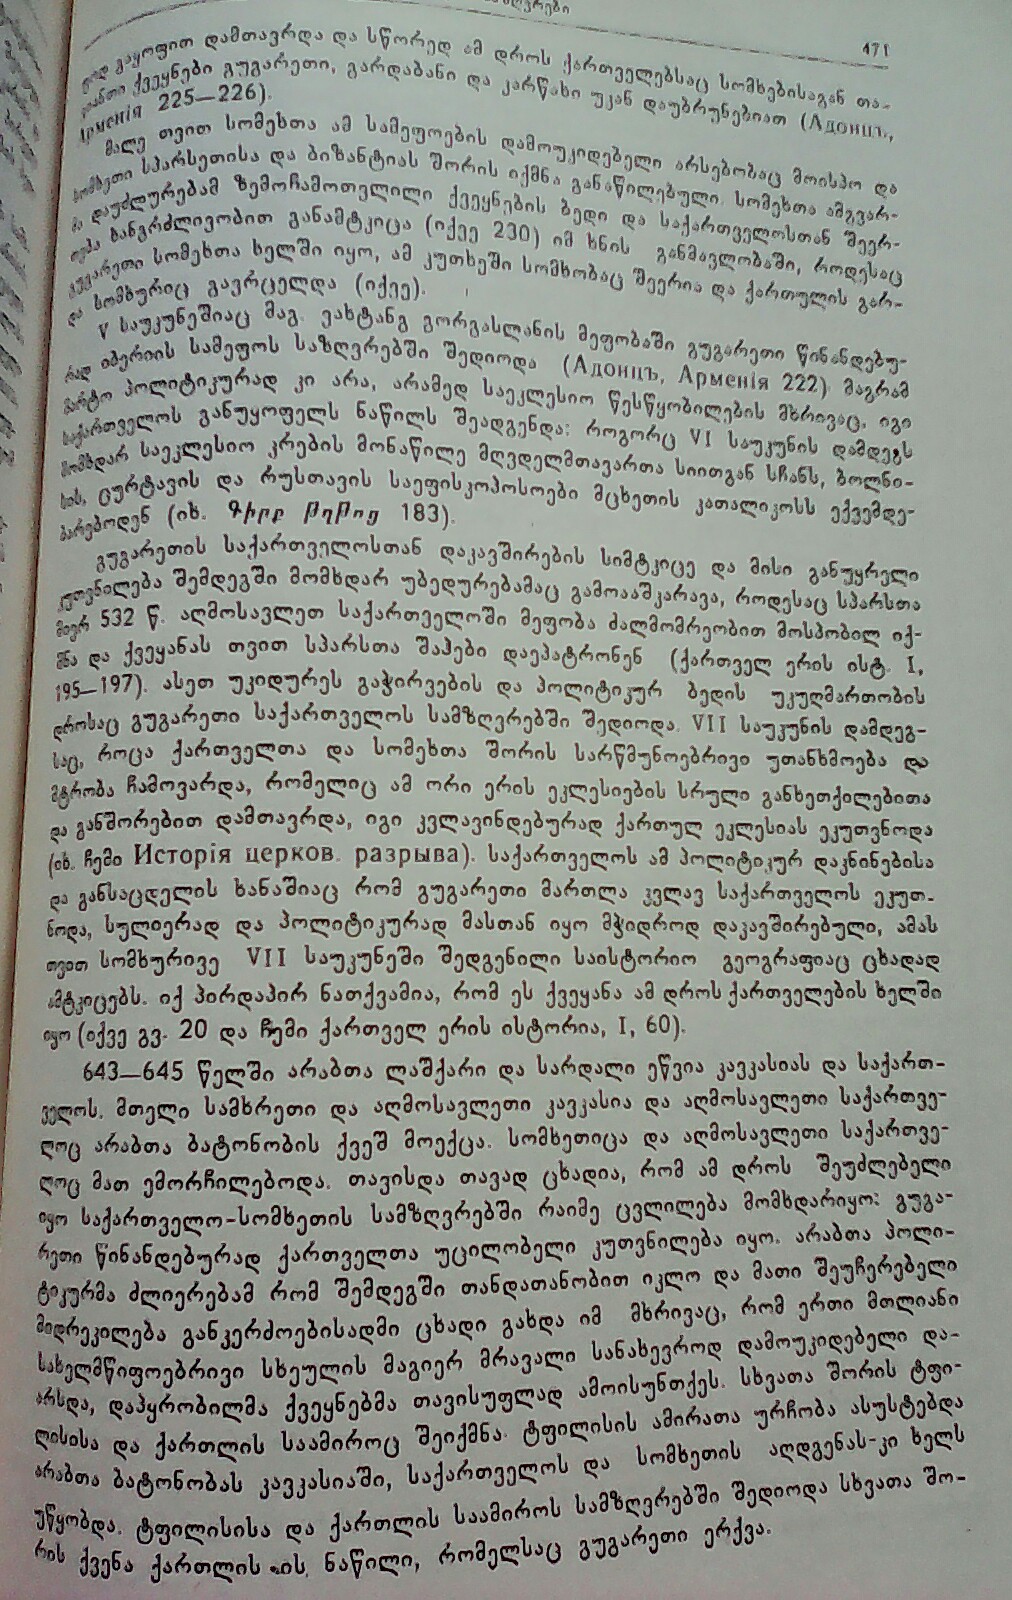 471
გაყოფით დამთავრდა და სწორედ ამ დროს ქართველებსაც სომხებისაგან თა-
ქვეყნები გუგარეთი, გარდაბანი და კარწახი უკან დაუბრუნებიათ (Адонцъ,
Арменія 225—226).
მალე თვით სომეხთა ამ სამეფოების დამოუკიდებელი არსებობაც მოისპო და
სომხეთი სპარსეთისა და ბიზანტიას შორის იქმნა განაწილებული. სომეხთა ამგვარ-
მა დაუძლურებამ ზემოჩამოთვლილი ქვეყნების ბედი და საქართველოსთან შეერ-
თება ხანგრძლივობით განამტკიცა (იქვე 230) იმ ხნის განმავლობაში, როდესაც
გუგარეთი სომეხთა ხელში იყო, ამ კუთხეში სომხობაც შეერია და ქართულის გარ-
და სომხურიც გავრცელდა (იქვე).
V საუკუნეშიაც მაგ. ვახტანგ გორგასლანის მეფობაში გუგარეთი წინანდებუ-
რად იბერიის სამეფოს საზღვრებში შედიოდა (Адонцъ, Арменія 222) მაგრამ
მარტო პოლიტიკურად კი არა, არამედ საეკლესიო წესწყობილების მხრივაც, იგი
საქართველოს განუყოფელს ნაწილს შეადგენდა: როგორც VI საუკუნის დამდეგს
მომხდარ საეკლესიო კრების მონაწილე მღვდელმთავართა სიითგან სჩანს, ბოლნი-
სის, ცურტავის და რუსთავის საეფისკოპოსოები მცხეთის კათალიკოსს ექვემდე-
ბარებოდენ (იხ. Գիրք թղթոց 183).
გუგარეთის საქართველოსთან დაკავშირების სიმტკიცე და მისი განუყრელი
კუთვნილება შემდეგში მომხდარ უბედურებამაც გამოააშკარავა, როდესაც სპარსთა
მიერ 532 წ. აღმოსავლეთ საქართველოში მეფობა ძალმომრეობით მოსპობილ იქ-
მნა და ქვეყანას თვით სპარსთა შაჰები დაეპატრონენ (ქართველ ერის ისტ. I,
195—197). ასეთ უკიდურეს გაჭირვების და პოლიტიკურ ბედის უკუღმართობის
დროსაც გუგარეთი საქართველოს სამზღვრებში შედიოდა. VII საუკუნის დამდეგ-
საც, როცა ქართველთა და სომეხთა შორის სარწმუნოებრივი უთანხმოება და
მტრობა ჩამოვარდა, რომელიც ამ ორი ერის ეკლესიების სრული განხეთქილებითა
და განშორებით დამთავრდა, იგი კვლავინდებურად ქართულ ეკლესიას ეკუთვნოდა
(იხ. ჩემი Исторія церков. разрыва). საქართველოს ამ პოლიტიკურ დაკნინებისა
და განსაცდელის ხანაშიაც რომ გუგარეთი მართლა კვლავ საქართველოს ეკუთ-
ნოდა, სულიერად და პოლიტიკურად მასთან იყო მჭიდროდ დაკავშირებული, ამას
თვით სომხურივე VII საუკუნეში შედგენილი საისტორიო გეოგრაფიაც ცხადად
ამტკიცებს. იქ პირდაპირ ნათქვამია, რომ ეს ქვეყანა ამ დროს ქართველების ხელში
იყო (იქვე გვ. 20 და ჩემი ქართველ ერის ისტორია, I, 60).
643—645 წელში არაბთა ლაშქარი და სარდალი ეწვია კავკასიას და საქართ-
ველოს. მთელი სამხრეთი და აღმოსავლეთი კავკასია და აღმოსავლეთი საქართვე-
ლოც არაბთა ბატონობის ქვეშ მოექცა. სომხეთიცა და აღმოსავლეთი საქართვე-
ლოც მათ ემორჩილებოდა. თავისდა თავად ცხადია, რომ ამ დროს შეუძლებელი
იყო საქართველო-სომხეთის სამზღვრებში რაიმე ცვლილება მომხდარიყო: გუგა-
რეთი წინანდებურად ქართველთა უცილობელი კუთვნილება იყო. არაბთა პოლი-
ტიკურმა ძლიერებამ რომ შემდეგში თანდათანობით იკლო და მათი შეუჩერებელი
მიდრეკილება განკერძოებისადმი ცხადი გახდა იმ მხრივაც, რომ ერთი მთლიანი
სახელმწიფოებრივი სხეულის მაგიერ მრავალი სანახევროდ დამოუკიდებელი და-
არსდა, დაპყრობილმა ქვეყნებმა თავისუფლად ამოისუნთქეს. სხვათა შორის ტფი-
ლისისა და ქართლის საამიროც შეიქმნა. ტფილისის ამირათა ურჩობა ასუსტებდა
არაბთა ბატონობას კავკასიაში, საქართველოს და სომხეთის აღდგენას-კი ხელს
უწყობდა. ტფილისისა და ქართლის საამიროს სამზღვრებში შედიოდა სხვათა შო-
რის ქვენა ქართლის ის ნაწილი, რომელსაც გუგარეთი ერქვა.